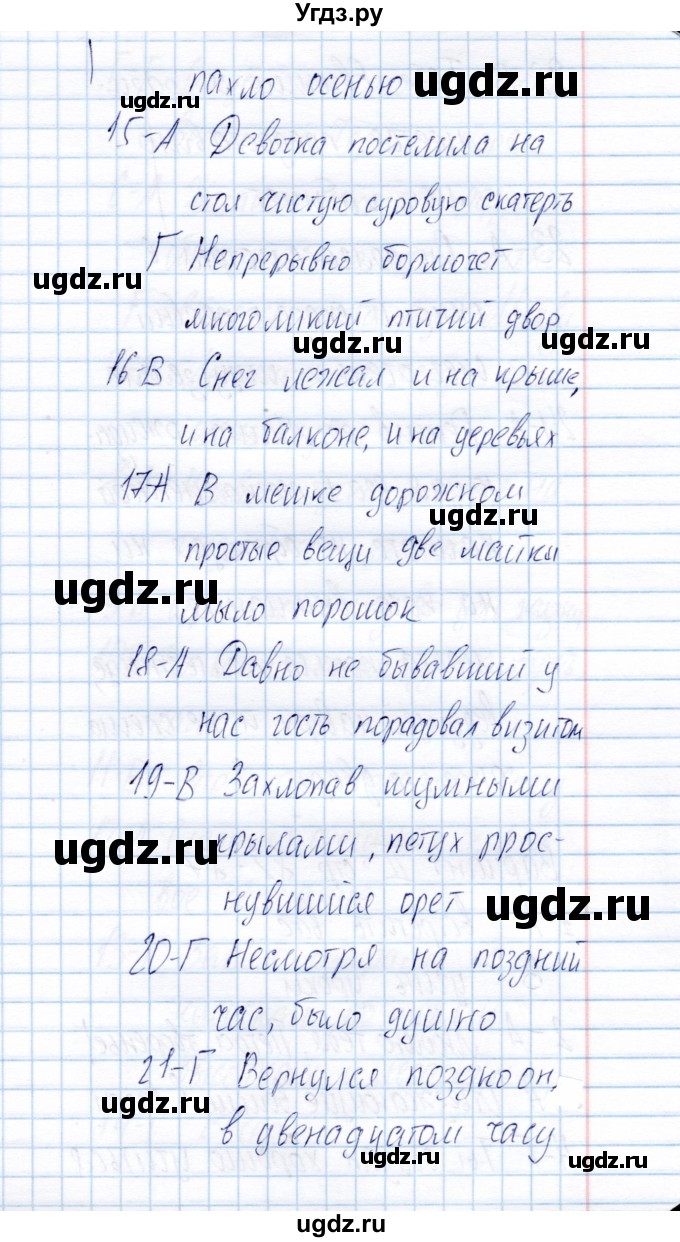 Угдз.ру
пахло осенью ugdz.ru
ugdz.ru
15-А Девочка постелила на
стол чистую суровую скатерть
Г Непрерывно бормочет
ugdz.ru
многоликий птичий двор
ugdz.ru
16-В Снег лежал и на крыше,
и на балконе, и на деревьях
17А В мешке дорожном
ugdz.ru
простые вещи две майки
ugdz.ru
мыло порошок
18-А Давно не бывавший у
ugdz.ru
нас гость порадовал визитом
19-В Захлопав шумными
ugdz.ru
крылами, петух прос-
нувшийся орет ugdz.ru
20-Г Несмотря на поздний
ugdz.ru
час, было душно
21-Г Вернулся поздно он,
ugdz.ru
в двенадцатом часу
ugdz.ru
ugdz.ru
ugdz.ru